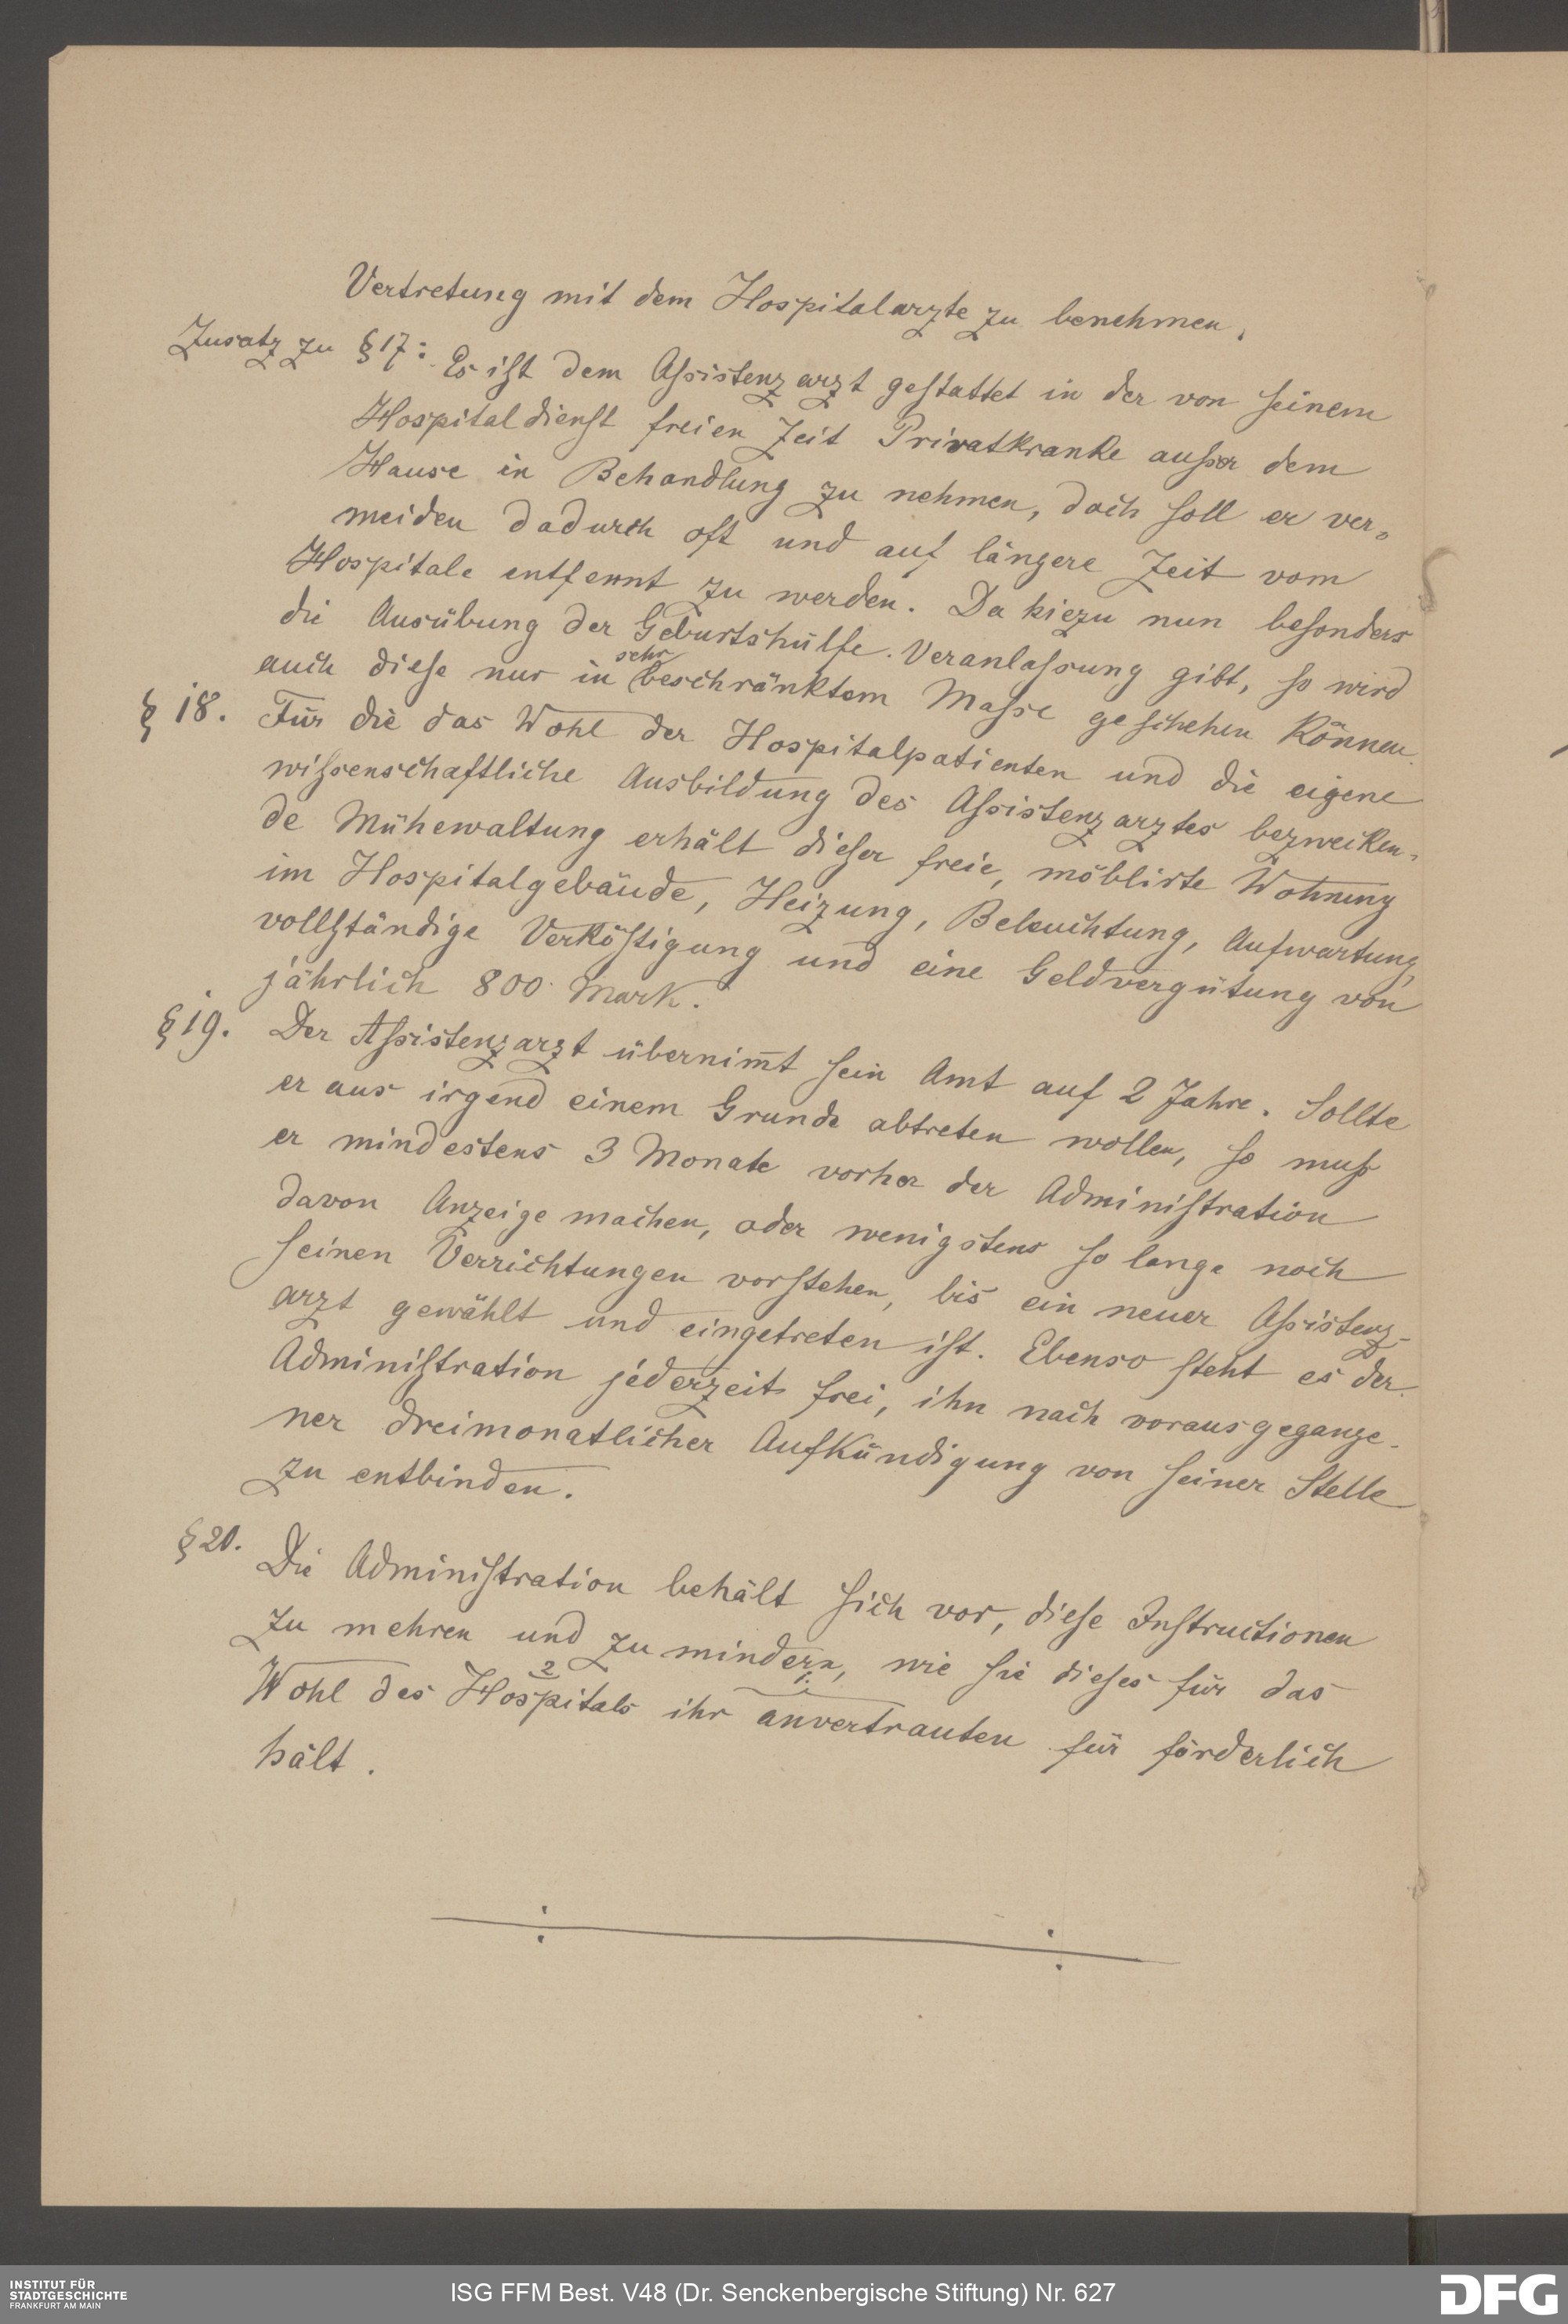 Vertretung mit dem Hospitalarzte zu benehmen.
Zusatz zu § 17: Es ist dem Assistenzarzt gestattet in der von seinem
Hospitaldienst freien Zeit Privatkranke ausser dem
Hause in Behandlung zu nehmen, doch soll er ver-
meiden dadurch oft und auf längere Zeit vom
Hospitale entfernt zu werden. Da hiezu nun besonders
die Ausübung der Geburtshülfe Veranlassung gibt, so wird
auch diese nur in sehr beschränktem Masse geschehen können.
§ 18. Für die das Wohl der Hospitalpatienten und die eigene
wissenschaftliche Ausbildung des Assistenzarztes bezwecken-
de Mühewaltung erhält dieser freie, möblirte Wohnung
im Hospitalgebäude, Heizung, Beleuchtung, Aufwartung,
vollständige Verköstigung und eine Geldvergütung von
jährlich 800 Mark.
§ 19. Der Assistenzarzt übernim̅t sein Amt auf 2 Jahre. Sollte
er aus irgend einem Grunde abtreten wollen, so muss
er mindestens 3 Monate vorher der Administration
davon Anzeige machen, oder wenigstens so lange noch
seinen Verrichtungen vorstehen, bis ein neuer Assistenz-
arzt gewählt und eingetreten ist. Ebenso steht es der
Administration jederzeit frei, ihn nach vorausgegange-
ner dreimonatlicher Aufkündigung von seiner Stelle
zu entbinden.
§ 20. Die Administration behält sich vor, diese Instructionen
zu mehren und zu mindern, wie sie dieses für das
Wohl des Hospitals ihr anvertrauten für förderlich
2 1.
hält.
INSTITUT FÜR
STADTGESCHICHTE
FRANKFURT AM MAIN
ISG FFM Best. V48 (Dr. Senckenbergische Stiftung) Nr. 627
DFG